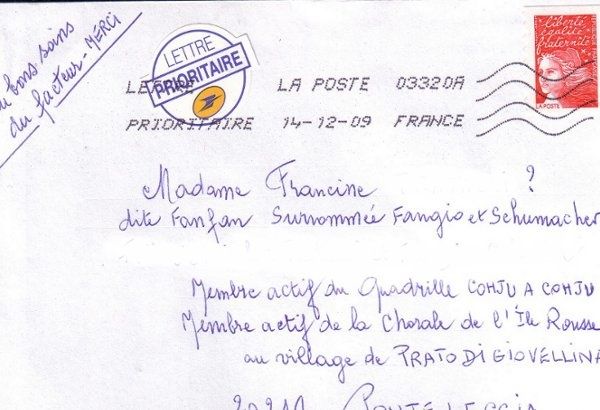 bons soins
du facteur - MERCI
LETTRE
PRIORITAIRE
LA POSTE 03320A
PRIORITAIRE 14-12-09 FRANCE
liberté
égalité
fraternité
LA POSTE
Madame Francine ?
dite Fanfan Surnommée Fangio et Schumacher
Membre actif du Quadrille COHJU A COHJU
Membre actif de la Chorale de l'Île Rousse
au village de PRATO DI GIOVELLINA
PONTE LECCIA